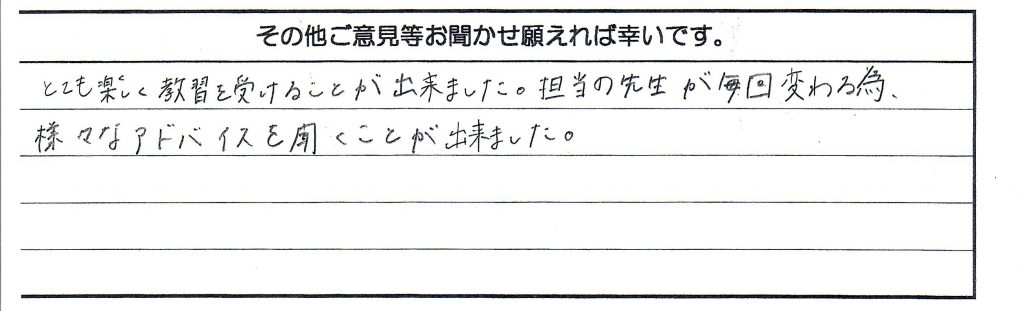 その他ご意見等お聞かせ願えれば幸いです。
とても楽しく教習を受けることが出来ました。担当の先生が毎回変わる為、
様々なアドバイスを聞くことが出来ました。